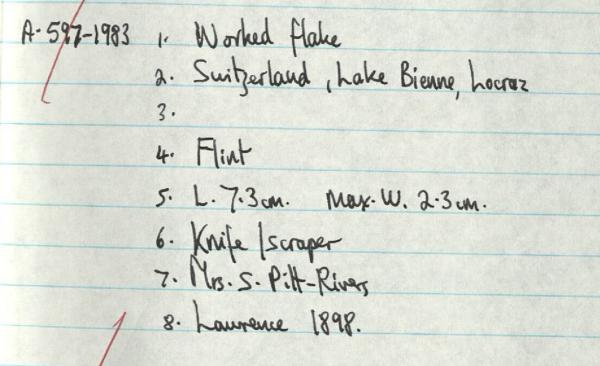 A·597-1983 1. Worked flake
2. Switzerland, Lake Bienne, Locraz
3.
4. Flint
5. L. 7.3cm. Max. W. 2.3cm.
6. Knife/scraper
7. Mrs. S. Pitt-Rivers
8. Lawrence 1898.